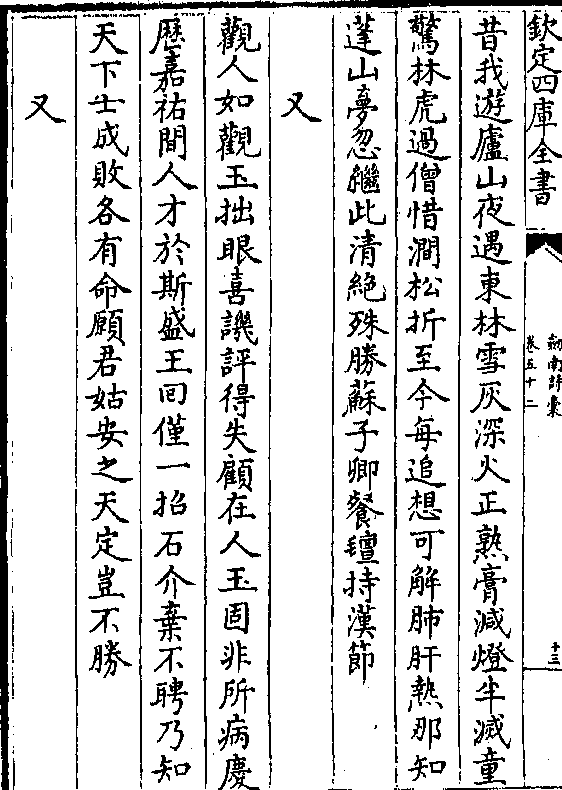 欽定四庫全書
劒南詩稾
卷五十二
十三
昔我遊廬山夜遇東林雪灰深火正熟膏減燈半滅童
驚林虎過僧惜澗松折至今每追想可解肺肝熱那知
蓬山夢忽繼此清絶殊勝蘇子卿餐氊持漢節
又
觀人如觀玉拙眼喜譏評得失顧在人玉固非所病慶
厯嘉祐間人才於斯盛王回僅一招石介棄不聘乃知
天下士成敗各有命願君姑安之天定豈不勝
又